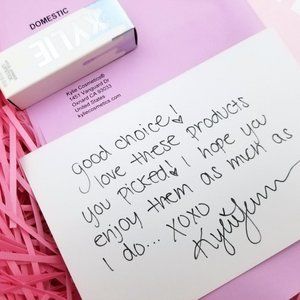 DOMESTIC
KYLIE
Kylie Cosmetics®
1451 Vanguard Dr
Oxnard CA 93033
United States
kyliecosmetics.com
good choice!
I love these products
you picked! I hope you
enjoy them as much as
I do... XOXO
Kylie Jenner